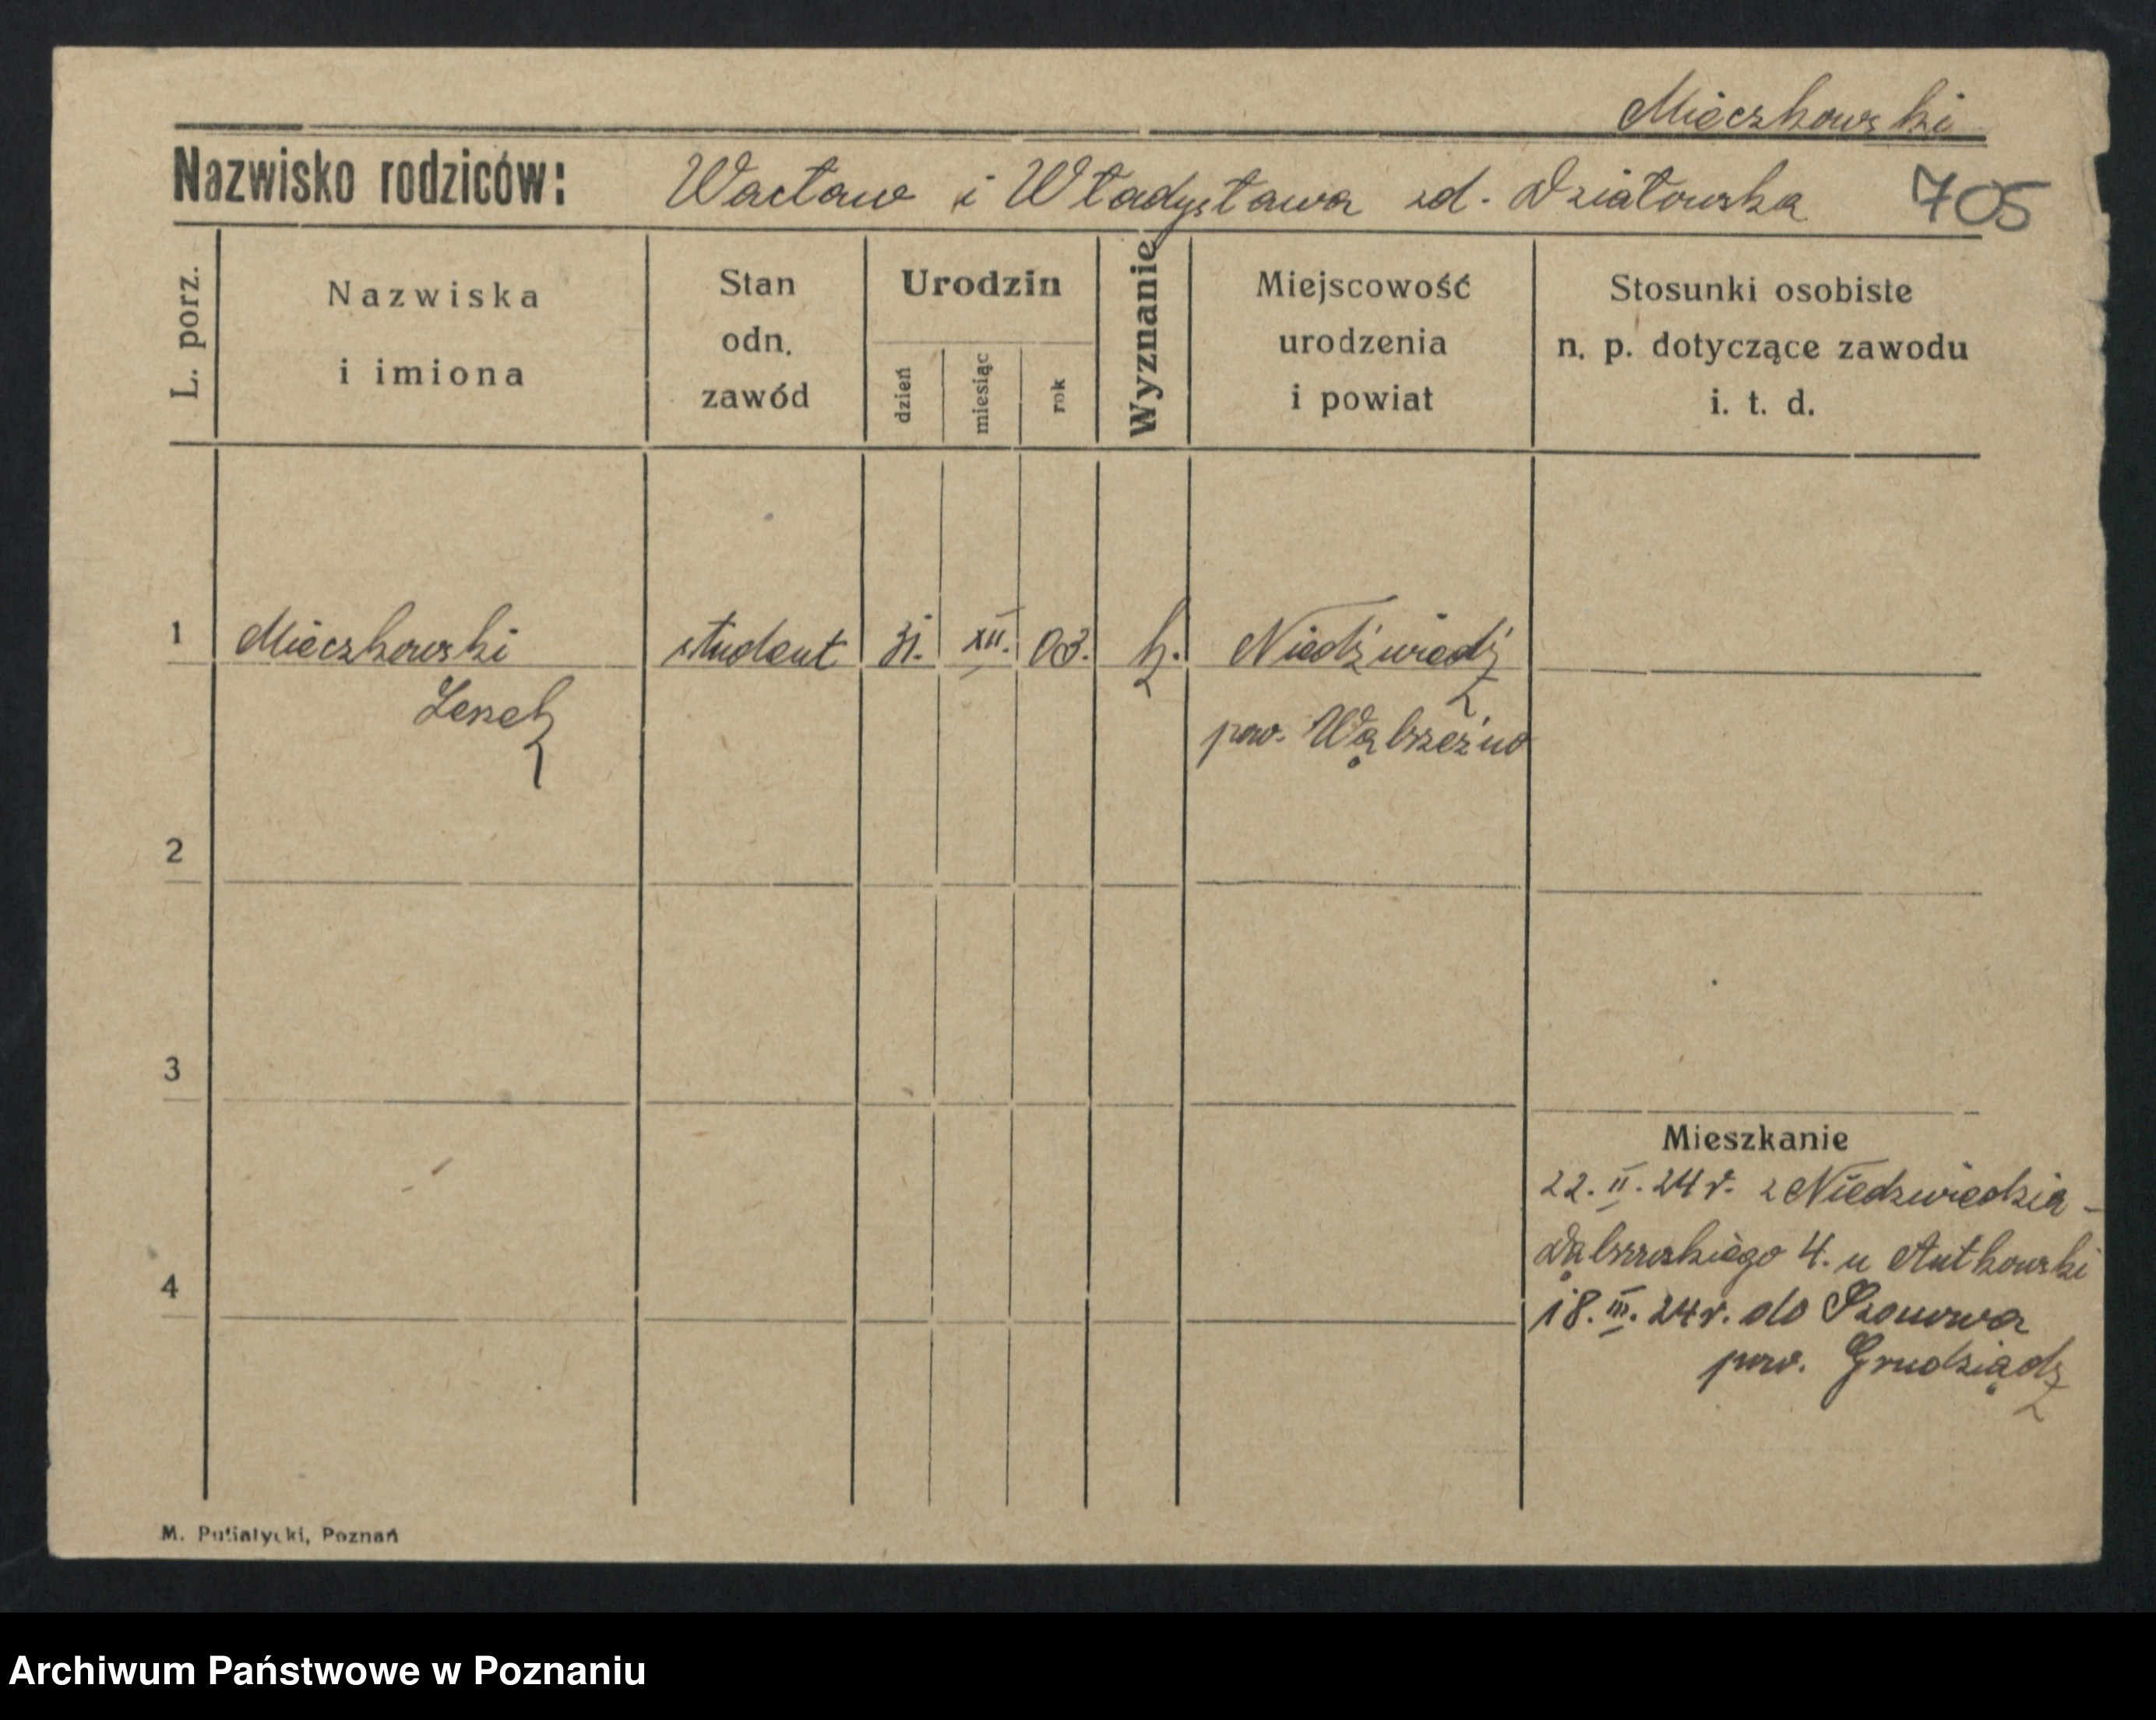 Mieczkowski
Nazwisko rodziców: Wacław i Władysława zd. Działowska 705
L. porz.
Nazwiska i imiona
Stan odn. zawód
Urodzin
dzień miesiąc rok
Wyznanie
Miejscowość urodzenia i powiat
Stosunki osobiste n. p. dotyczące zawodu i. t. d.
1 Mieczkowski student 31. XII. 03. k. Niedźwiedź
Leszek pow. Wąbrzeźno
2
3
Mieszkanie
22. II. 24 r. z Niedzwiedzia -
Dąbrowskiego 4. u Antkowski
4
18. III. 24 r. do Szonowa
pow. Grudziądz
M. Putiatycki, Poznań
Archiwum Państwowe w Poznaniu